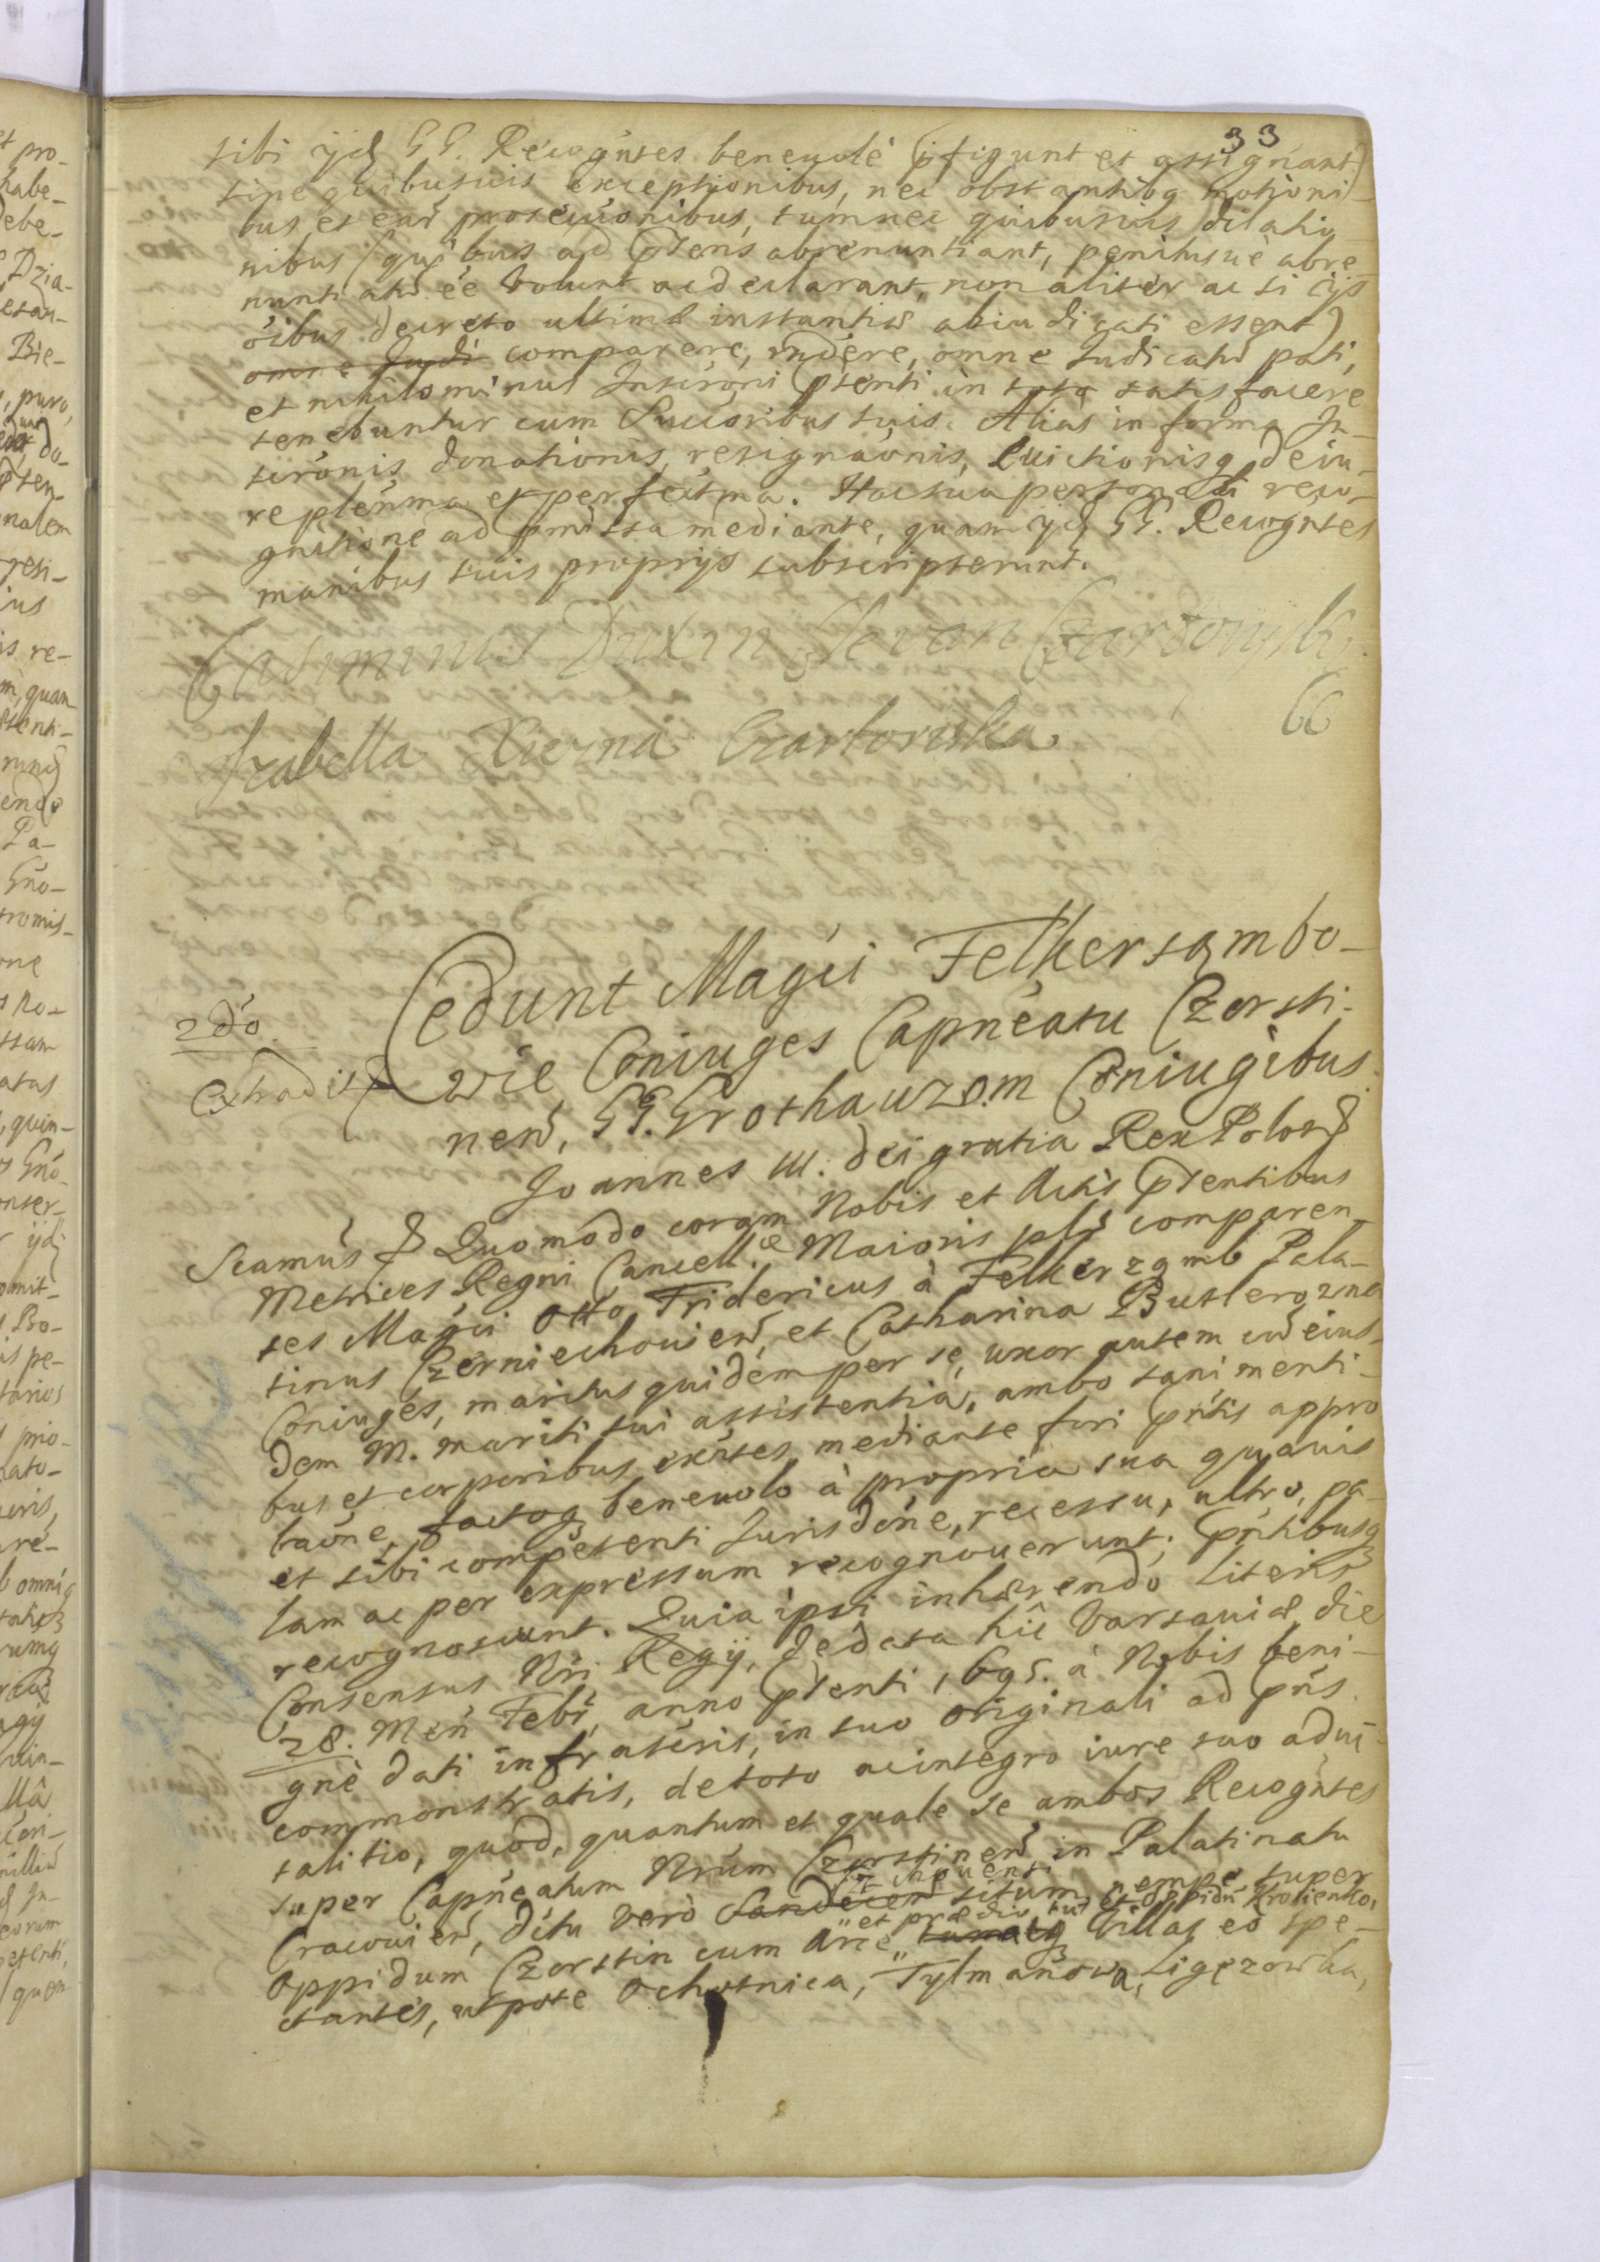 33
sibi ijd GG. Recogntes beneuole pfigunt et assignant)
sine quibusuis exceptionibus, nec obstantibq motioni-
bus, et ear prosecuonibus, tum nec quibusuis dilatio-
nibus (quibus ad pdens abrenuntiant, penitusue abre-
nuntiatu ee volunt ac declarant, non aliter ac si ijs
oibus decreto ultimæ instantiæ abiudicati essent)
omne Judi comparere, rndere, omne Judicatu pati,
et nihilominus Inscroni pdenti in toto satisfacere
tenebuntur cum Succoribus suis. Alias in forma In-
scronis donationis, resignaonis, euictionisq de iu-
re plenma et perfectma. Hac sua personali reco-
gnitione ad pmissa mediante, quam ijd GG. Recogntes
manibus suis proprijs subscripserunt.
Casimirus Dux in Klevan Czartoryski
Izabella Xiezna Czartoriska
Cedunt Magci Felkersambo-
2do
wie Coniuges Capneatu Czorsti-
Extradit
nen, GG. Grothauzom Coniugibus.
Joannes III. dei gratia Rex Polon
Scamus Quomodo coram Nobis et Actis pdentibus
Metrices Regni Cancell.æ Maioris plr comparen-
tes Magci Otto Fridericus à Felkerzamb Pala-
tinus Czerniechouien, et Catharina Butlerozna
Coniuges, maritus quidem per se, uxor autem cu eius-
dem M. mariti sui assistentia, ambo sani menti-
bus et corporibus exntes, mediante fori pntis appro
baone, factoq beneuolo à propria sua quauis
et sibi competenti Jurisdone, recessu, ultro, pa-
lam ac per expressum recognouerunt; pntibusq
recognoscunt. Quia ipsi inhærendo Literis
Consensus Nri Regij, de data hic Varsauiæ die
28. Men Febr, anno pdenti 1695. à Nobis beni-
gne dati infrascris, in suo originali ad pns
commonstratis, de toto ac integro iure suo adui-
talitio, quod, quantum et quale se ambos Recogntes
super Capneatum Nrum Czorstinen in Palatinatu
Cracouien, dctu vero Sandecen Czchouensi situm, nempe super
Oppidum Czorstin cum Arce et prædio, tum et Oppidu Krosienko, tumatq Villas eo spe-
ctantes, utpote Ochotnica, Tylmanowa, Ligęzowka,